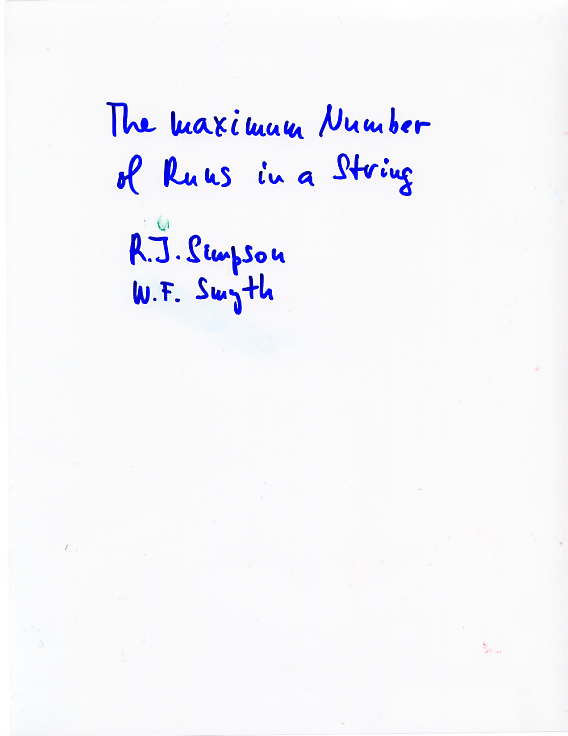 The maximum Number
of Runs in a String
R.J. Simpson
W.F. Smyth